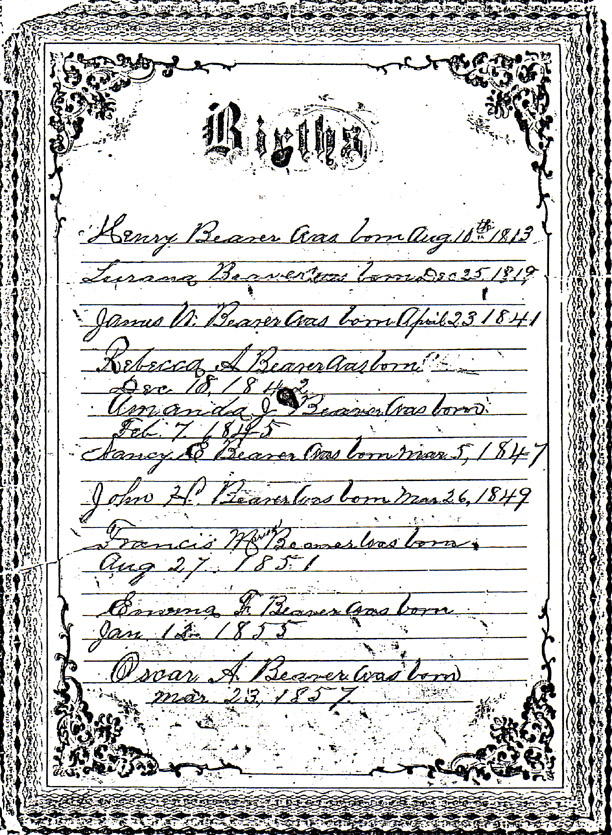 Births
Henry Beaver was born Aug 10th 1813
Lurana Beaver was born Dec 25 1819
James N. Beaver was born April 23 1841
Rebecca A Beaver was born
Dec 18, 1842
Amanda J Beaver was born
Feb. 7 1845
Nancy E Beaver was born Mar 5, 1847
John H. Beaver was born Mar 26, 1849
Francis Marion Beaver was born
Aug 27. 1851
F. Beaver was born
Jan 12 1855
Oscar A Beaver was born
Mar. 23, 1857.